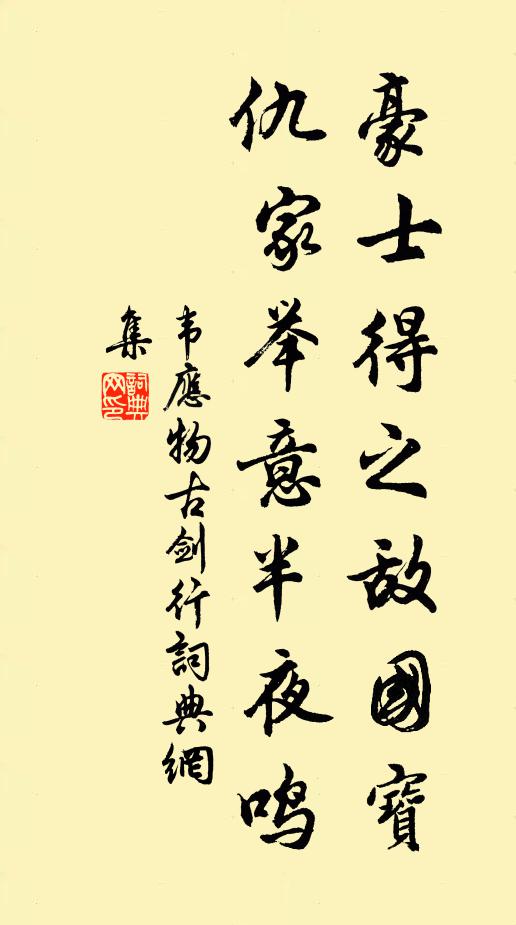 豪士得之敌國寶
仇家举意半夜鸣
韦應物古剑行詞典網
集
詞典网印